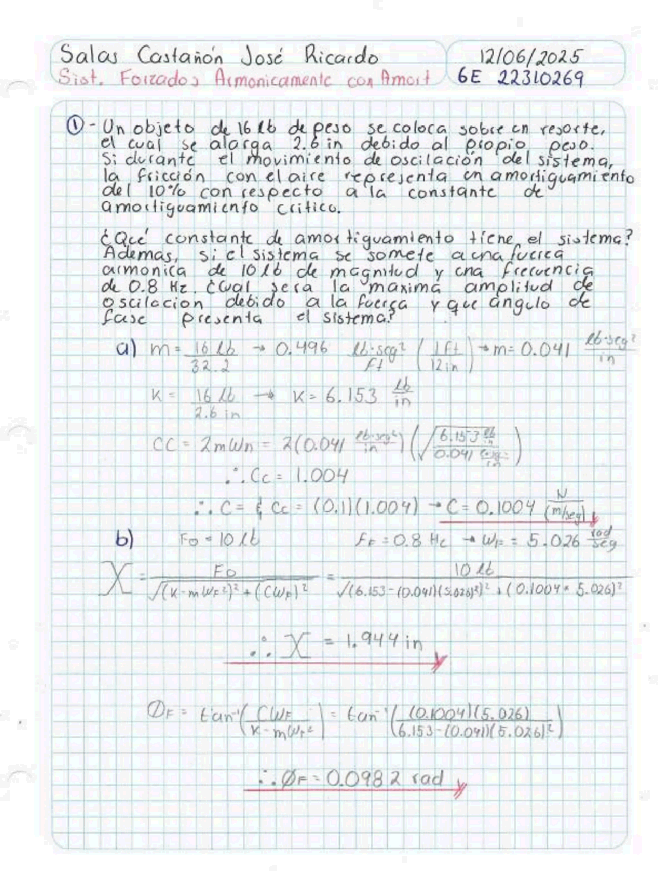 Salas Castañón José Ricardo
12/06/2025
Sist. Forzados Armonicamente con Amort
6E 22310269
① - Un objeto de 16 lb de peso se coloca sobre un resorte,
el cual se alarga 2.6 in debido al propio peso.
Si durante el movimiento de oscilación del sistema,
la fricción con el aire representa un amortiguamiento
del 10% con respecto a la constante de
amortiguamiento critico.
¿Qué constante de amortiguamiento tiene el sistema?
Ademas, si el sistema se somete a una fuerza
armonica de 10 lb de magnitud y una frecuencia
de 0.8 Hz. Cual sera la maxima amplitud de
oscilacion debido a la fuerza y que angulo de
fase presenta el sistema?
a) m = 16 lb / 32.2 → 0.496 lb·seg² / Ft (1Ft / 12in) → m = 0.041 lb·seg² / in
K = 16 lb / 2.6 in → K = 6.153 lb / in
CC = 2mWn = 2(0.041 lb·seg² / in)(√(6.153 lb/in / 0.041 lb·seg²/in))
∴ Cc = 1.004
∴ C = ξ Cc = (0.1)(1.004) → C = 0.1004 N / (m/seg)
b) Fo = 10 lb FF = 0.8 Hz → WF = 5.026 rad / seg
X = Fo / √((K - mWF²)² + (CWF)²) = 10 lb / √((6.153 - (0.041)(5.026)²)² + (0.1004 * 5.026)²
∴ X = 1.944 in
ØF = tan⁻¹(CWF / K - mWF²) = tan⁻¹((0.1004)(5.026) / (6.153 - (0.041)(5.026)²)
∴ ØF = 0.0982 rad